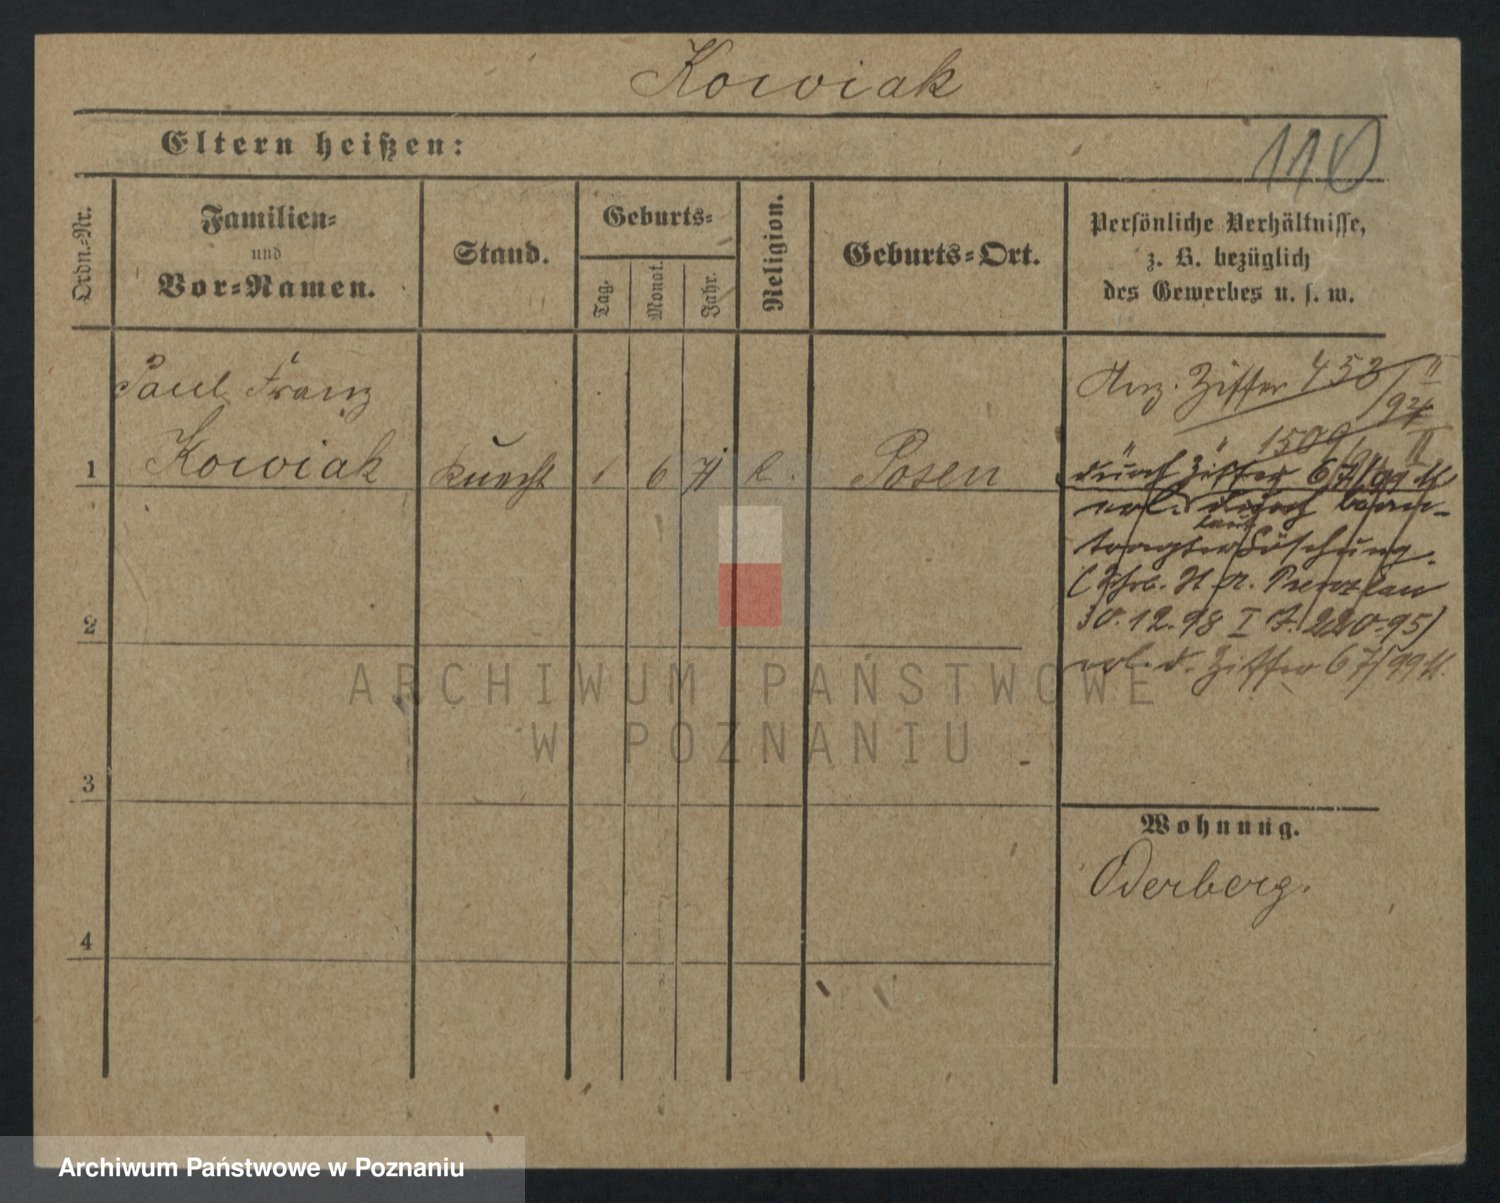 Kowiak
Eltern heißen:
110
Ordn.=Nr.
Familien=
und
Vor=Namen.
Stand.
Geburts=
Tag.
Monat.
Jahr.
Religion.
Geburts=Ort.
Persönliche Verhältnisse,
z. B. bezüglich
des Gewerbes u. s. w.
Paul Franz
1 Kowiak Knecht 1 6 71 k. Posen
2
3
4
Anz. Ziffer 453/II
94
1509
durch Ziffer 67/99 II
erl. durch bean-
laut
tragter Löschung.
(Schrb. St. A. Prenzlau
30.12.98 I J. 220.95)
erl. d. Ziffer 67/99 II.
Wohnung.
Oderberg.
ARCHIWUM PAŃSTWOWE
W POZNANIU
Archiwum Państwowe w Poznaniu